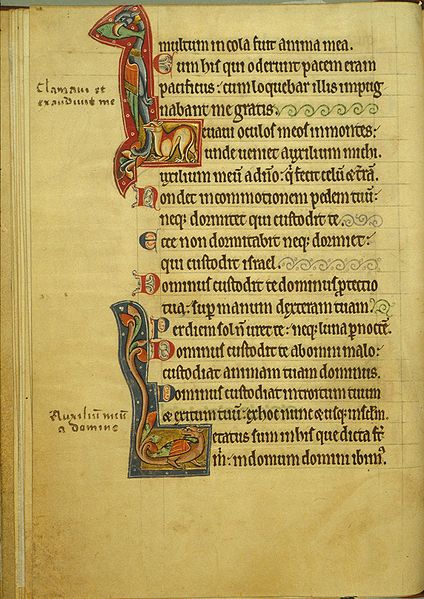 multum incola fuit anima mea.
Cum his qui oderunt pacem eram
pacificus: cum loquebar illis impug
nabant me gratis.
Clamaui et
exaudiuit me
Leuaui oculos meos in montes:
unde ueniet auxilium michi.
Auxilium meū a dño: q̇ fecit celū & t̄rā.
Non det in commotionem pedem tuū:
neq; dormitet qui custodit te.
Ecce non dormitabit neq; dormiet:
qui custodit israel.
Dominus custodit te dominus ꝓtectio
tua: suꝑ manum dexteram tuam.
Per diem sol ñ uret te: neq; luna ꝑ noctē.
Dominus custodit te ab omni malo:
custodiat animam tuam dominus.
Dominus custodiat introitum tuum
& exitum tuū: ex hoc nunc & usq; in sclm̄.
Auxiliū meū
a domino
Letatus sum in his que dicta st̄
m̊: in domum domini ibimꝰ.